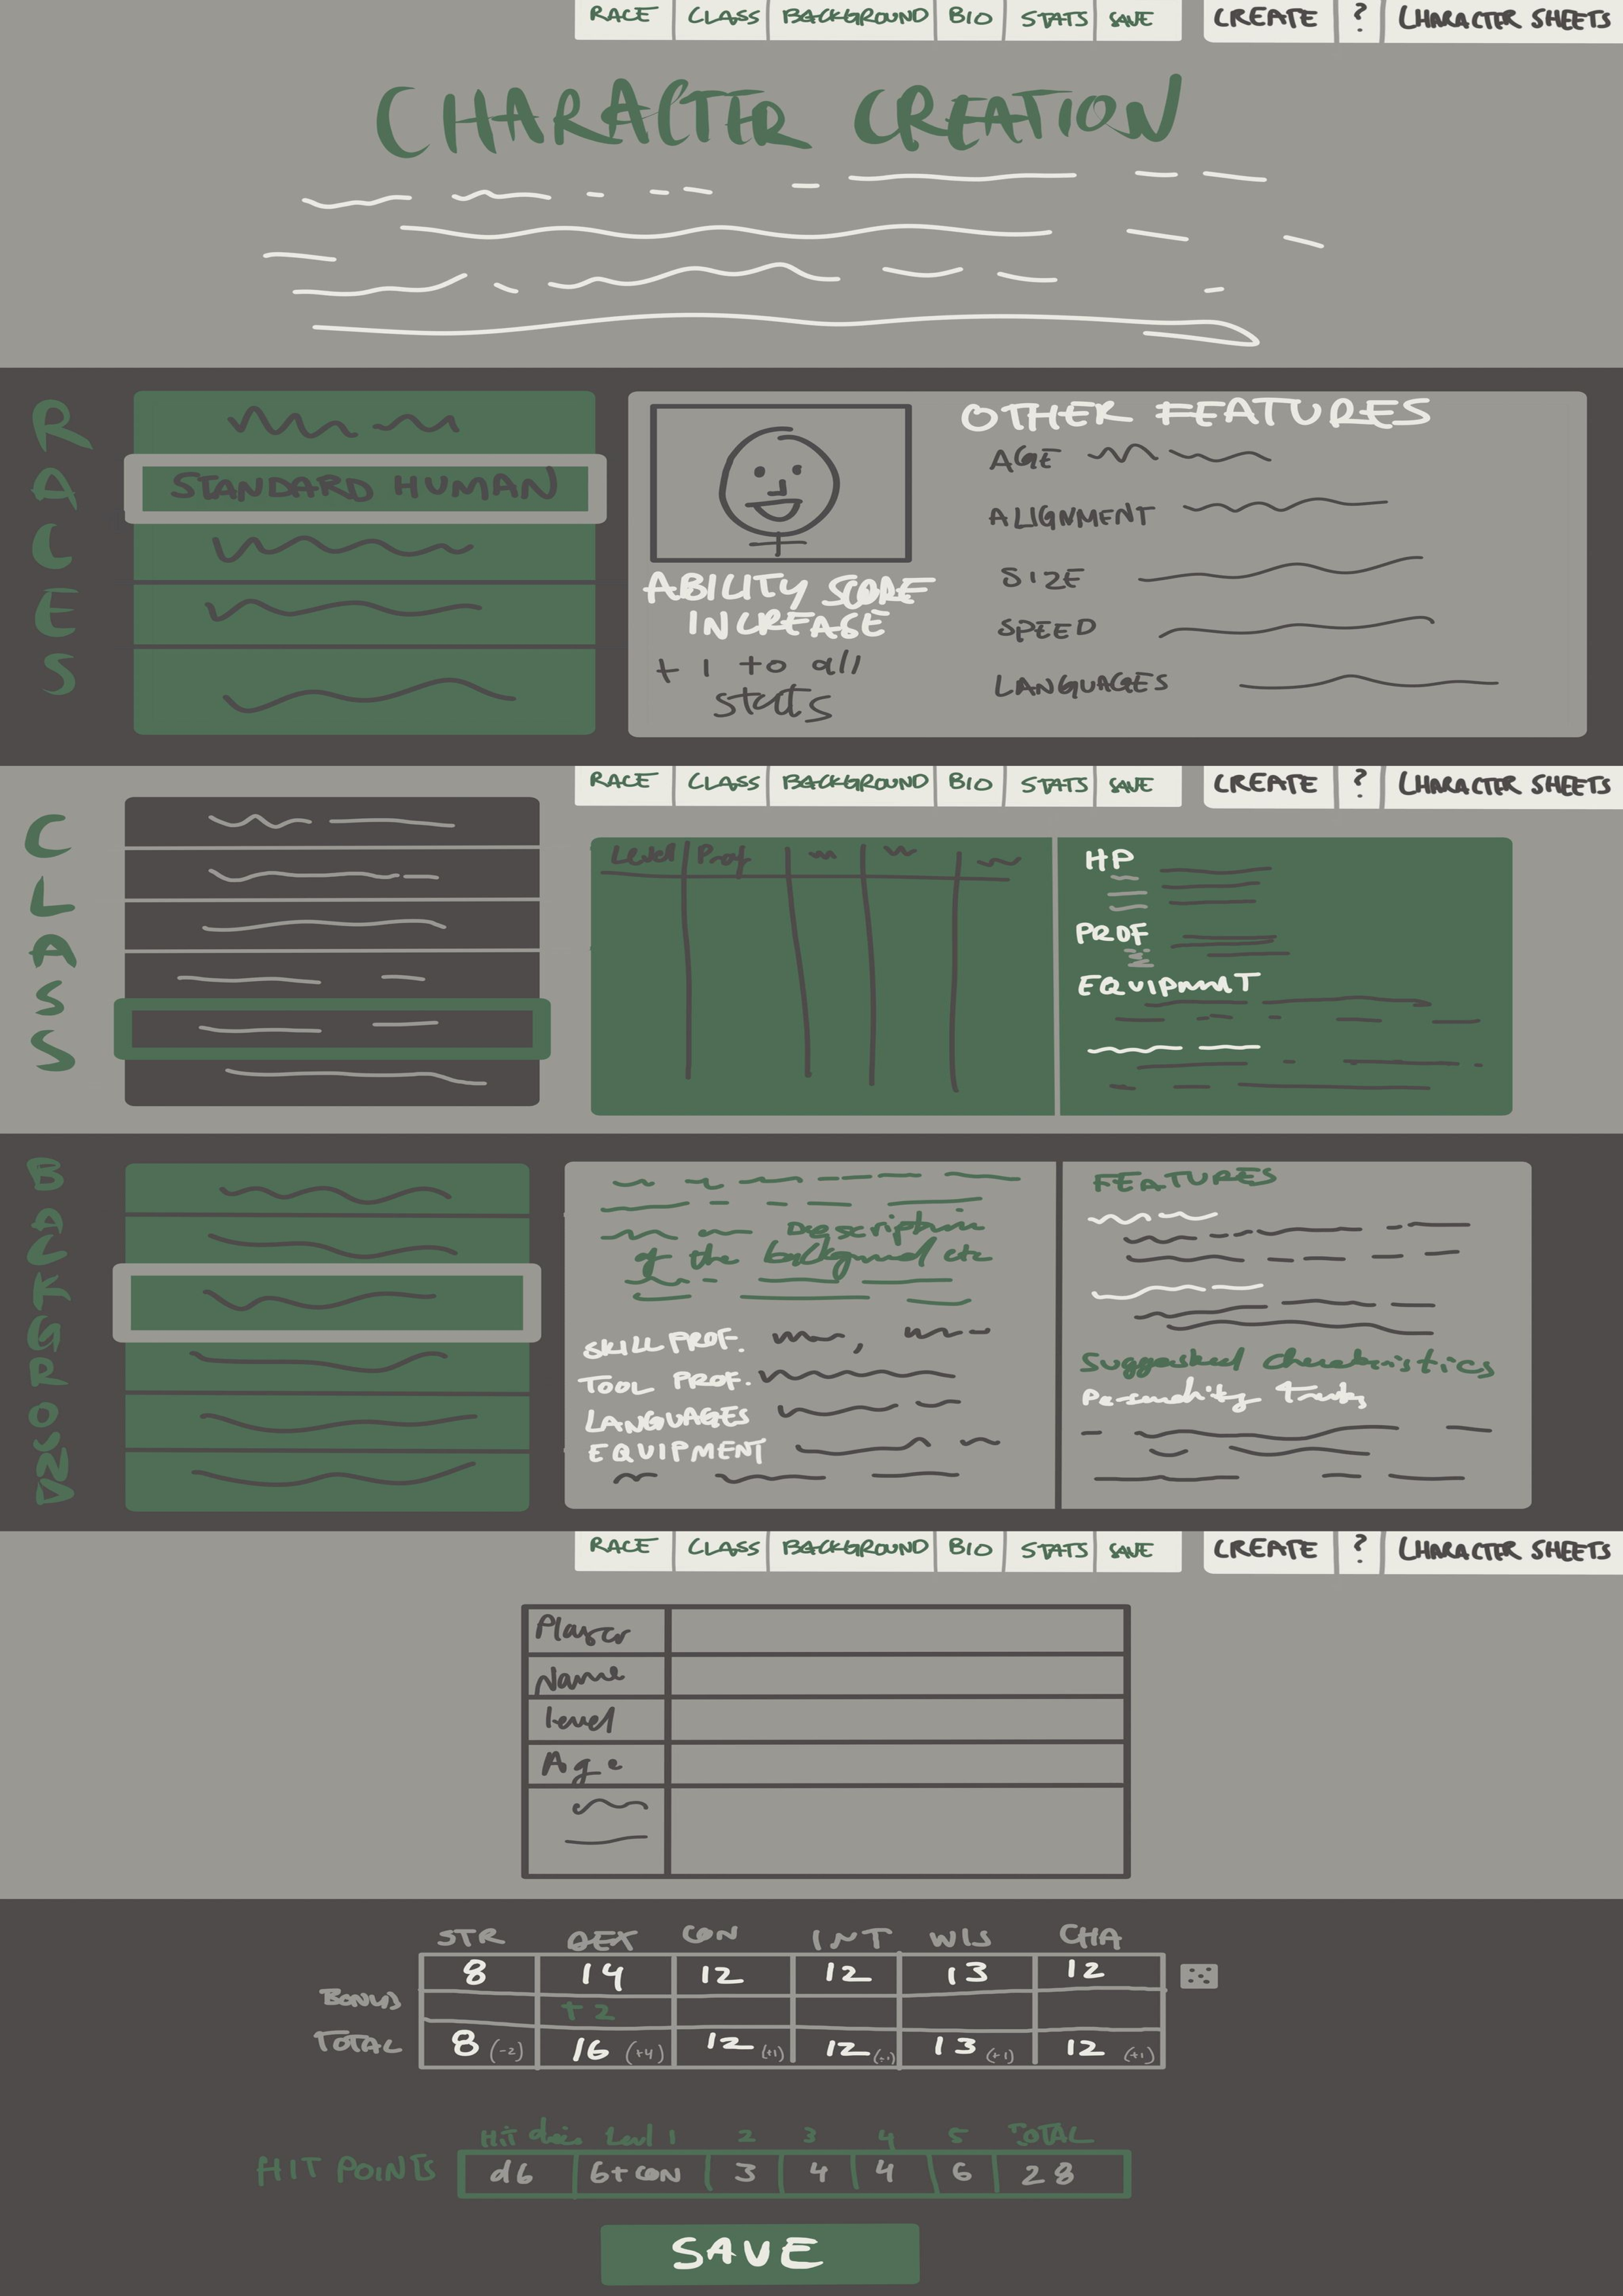 RACE CLASS BACKGROUND BIO STATS SAVE CREATE ? CHARACTER SHEETS
CHARACTER CREATION
RACES
STANDARD HUMAN
ABILITY SCORE
INCREASE
+ 1 to all
stats
OTHER FEATURES
AGE
ALIGNMENT
SIZE
SPEED
LANGUAGES
RACE CLASS BACKGROUND BIO STATS SAVE CREATE ? CHARACTER SHEETS
CLASS
Level Prof
HP
PROF
EQUIPMENT
BACKGROUND
Description
of the background etc
SKILL PROF.
TOOL PROF.
LANGUAGES
EQUIPMENT
FEATURES
Suggested characteristics
Personality Traits
RACE CLASS BACKGROUND BIO STATS SAVE CREATE ? CHARACTER SHEETS
Player
Name
Level
Age
STR DEX CON INT WIS CHA
8 14 12 12 13 12
BONUS +2
TOTAL 8 (-2) 16 (+4) 12 (+1) 12 (+1) 13 (+1) 12 (+1)
Hit dice Level 1 2 3 4 5 TOTAL
HIT POINTS d6 6+CON 3 4 4 6 28
SAVE